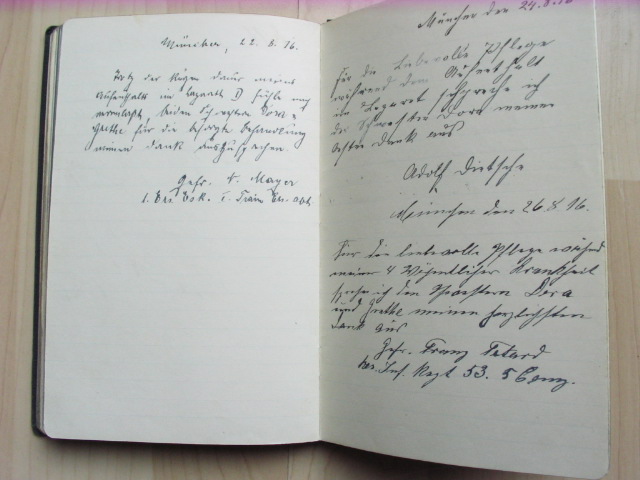 München, 22. 8. 16.
Trotz der kurzen Dauer meines
Aufenthalts im Lazarett B fühle mich
veranlaßt, beiden Schwestern Dora &
Grethe für die besorgte Behandlung
meinen Dank auszusprechen
Gefr. A. Mayer
1. Ers. Esk. I. Train Ers. Abt.
München den 24.8.16
Für die liebevolle Pflege
während dem Aufenthalt
im Lazaret spreche ich
der Schwester Dora meinen
besten Dank aus
Adolf Dietsche
München den 26.8.16.
Für die liebevolle Pflege während
meiner 4 Wöchentlicher Krankheit
spreche ich den Schwestern Dora
und Grethe meinen herzlichsten
Dank aus
Gefr. Franz
Res. Inf. Regt 53. 5 Comp.